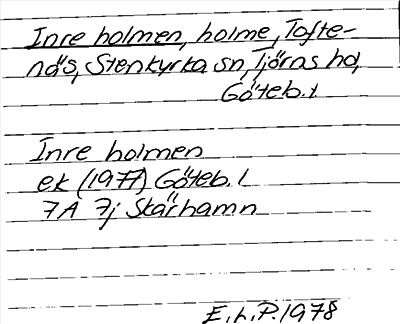 Inre holmen, holme, Tofte-
näs, Stenkyrka sn, Tjörns hd,
Göteb. l
Inre holmen
ek (1977) Göteb. l
7A 7j Skärhamn
E. L. P. 1978